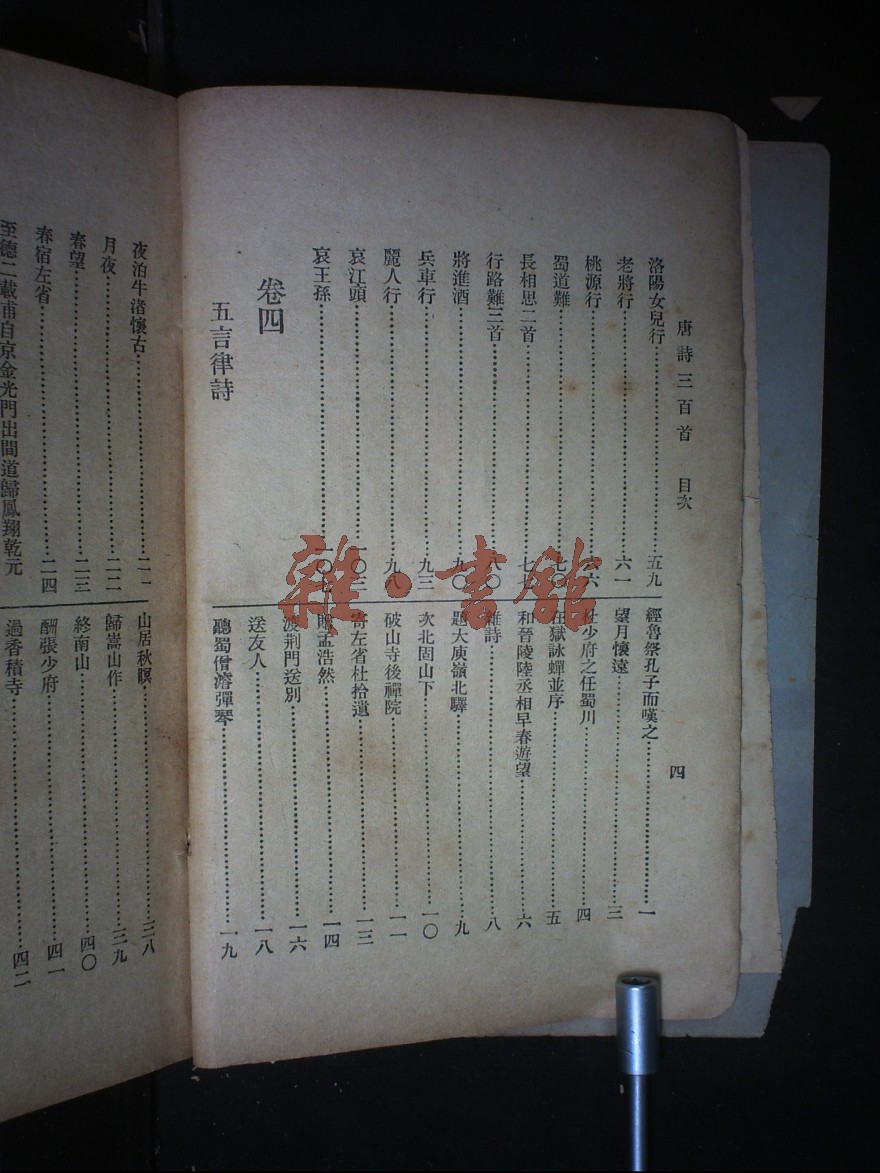 唐詩三百首 目次 四
洛陽女兒行 五九
老將行 六一
桃源行 六六
蜀道難 七〇
長相思二首 七七
行路難三首 八〇
將進酒 九〇
兵車行 九三
麗人行 九八
哀江頭 一〇三
哀王孫 一〇七
卷四
五言律詩
經魯祭孔子而嘆之 一
望月懷遠 三
杜少府之任蜀川 四
在獄詠蟬並序 五
和晉陵陸丞相早春遊望 六
雜詩 八
題大庾嶺北驛 九
次北固山下 一〇
破山寺後禪院 一一
寄左省杜拾遺 一三
贈孟浩然 一四
渡荆門送別 一六
送友人 一八
聽蜀僧濬彈琴 一九
夜泊牛渚懷古 二一
月夜 二二
春望 二三
春宿左省 二四
至德二載甫自京金光門出間道歸鳳翔乾元
山居秋暝 三八
歸嵩山作 三九
終南山 四〇
酬張少府 四一
過香積寺 四二
雜·書館